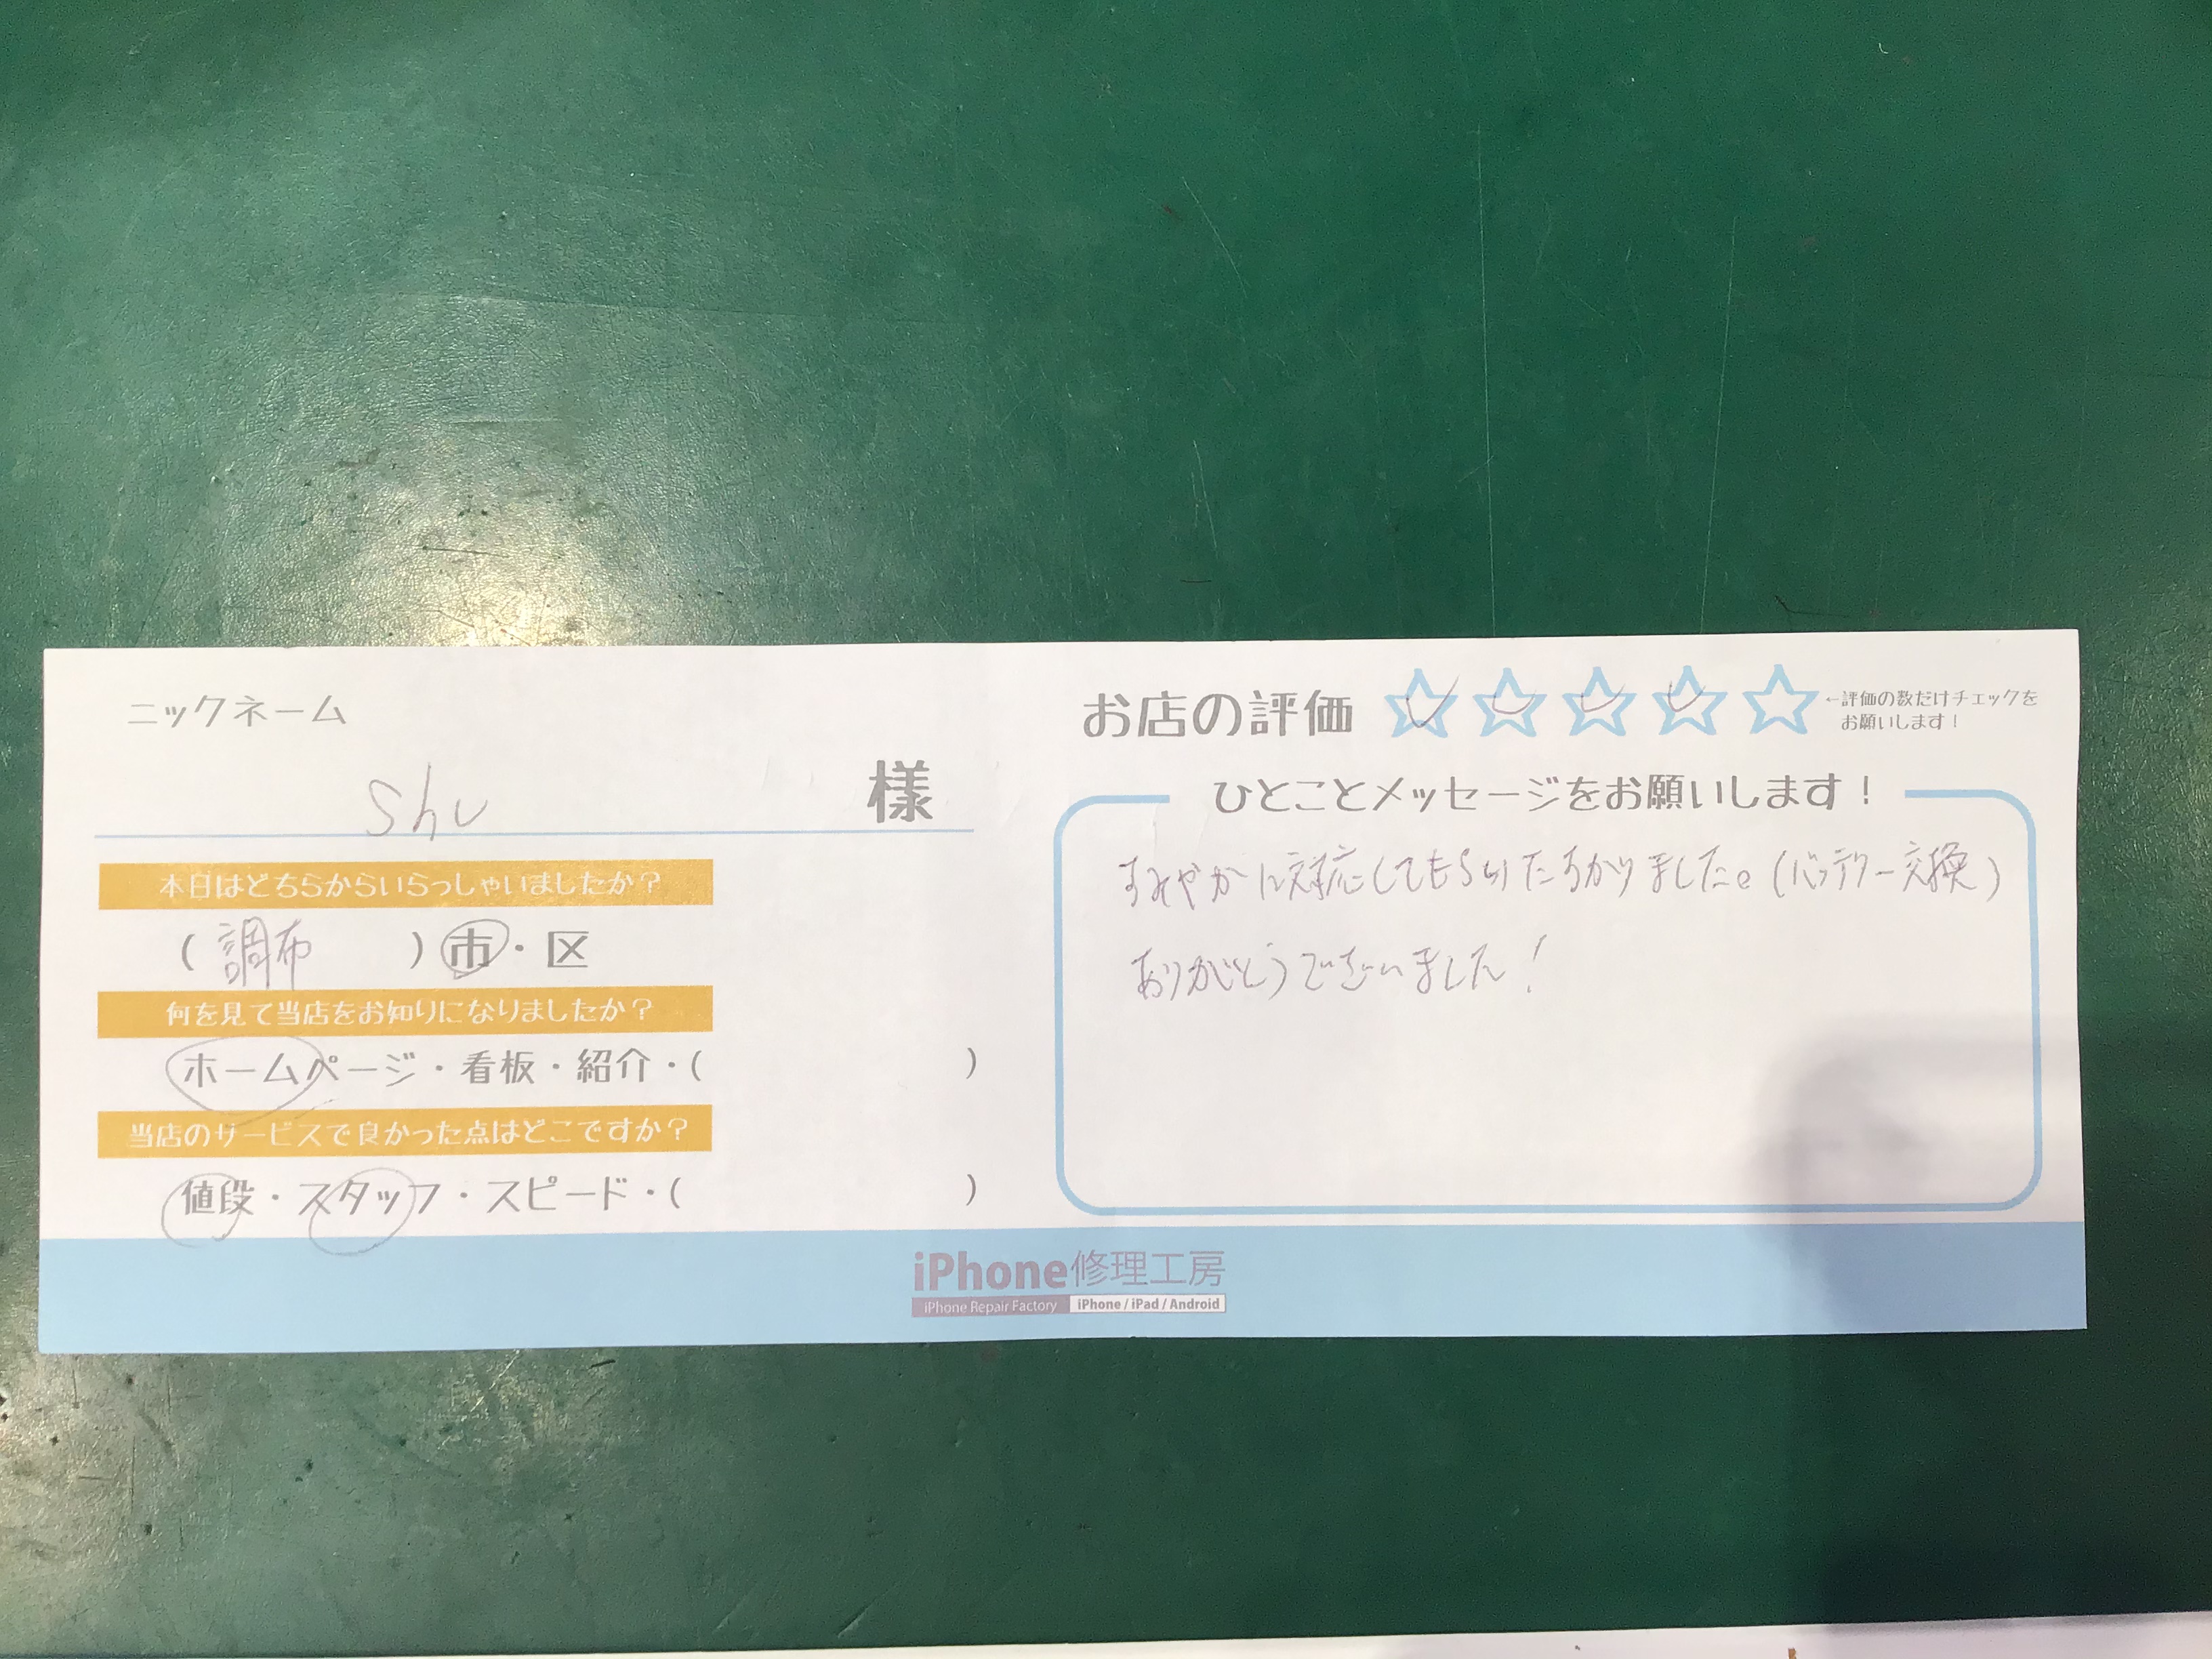 ニックネーム
shu 様
本日はどちらからいらっしゃいましたか？
( 調布 ) 市・区
何を見て当店をお知りになりましたか？
ホームページ・看板・紹介・( )
当店のサービスで良かった点はどこですか？
値段・スタッフ・スピード・( )
お店の評価 ☆☆☆☆☆ ←評価の数だけチェックを
お願いします！
ひとことメッセージをお願いします！
すみやかに対応してもらいたすかりました。(バッテリー交換)
ありがとうございました！
iPhone修理工房
iPhone Repair Factory iPhone / iPad / Android